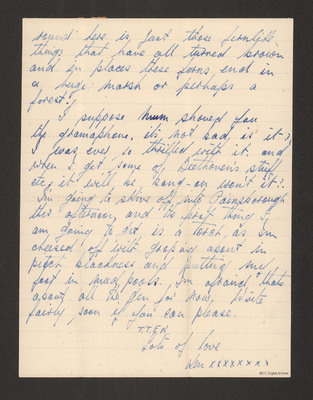 round here is, just those fernlike
things that have all turned brown
and in places these ferns end in
a huge marsh or perhaps a
forest!
I suppose Mum showed you
the gramophone, it's not bad is it?
I was ever so thrilled with it. and
when I get some of Beethoven's stuff
etc, it will be bang-on won't it!.
I'm going to shive off into Gainsborough
this afternoon, and the first thing I
am going to get, is a torch, as I'm
cheesed off with groping about in
pitch blackness and putting my
foot in mud pools. I'm afraid thats
about all the gen for now, write
fairly soon if you can please.
T.T.F.N.
Lots of love
Ken xxxxxxxx